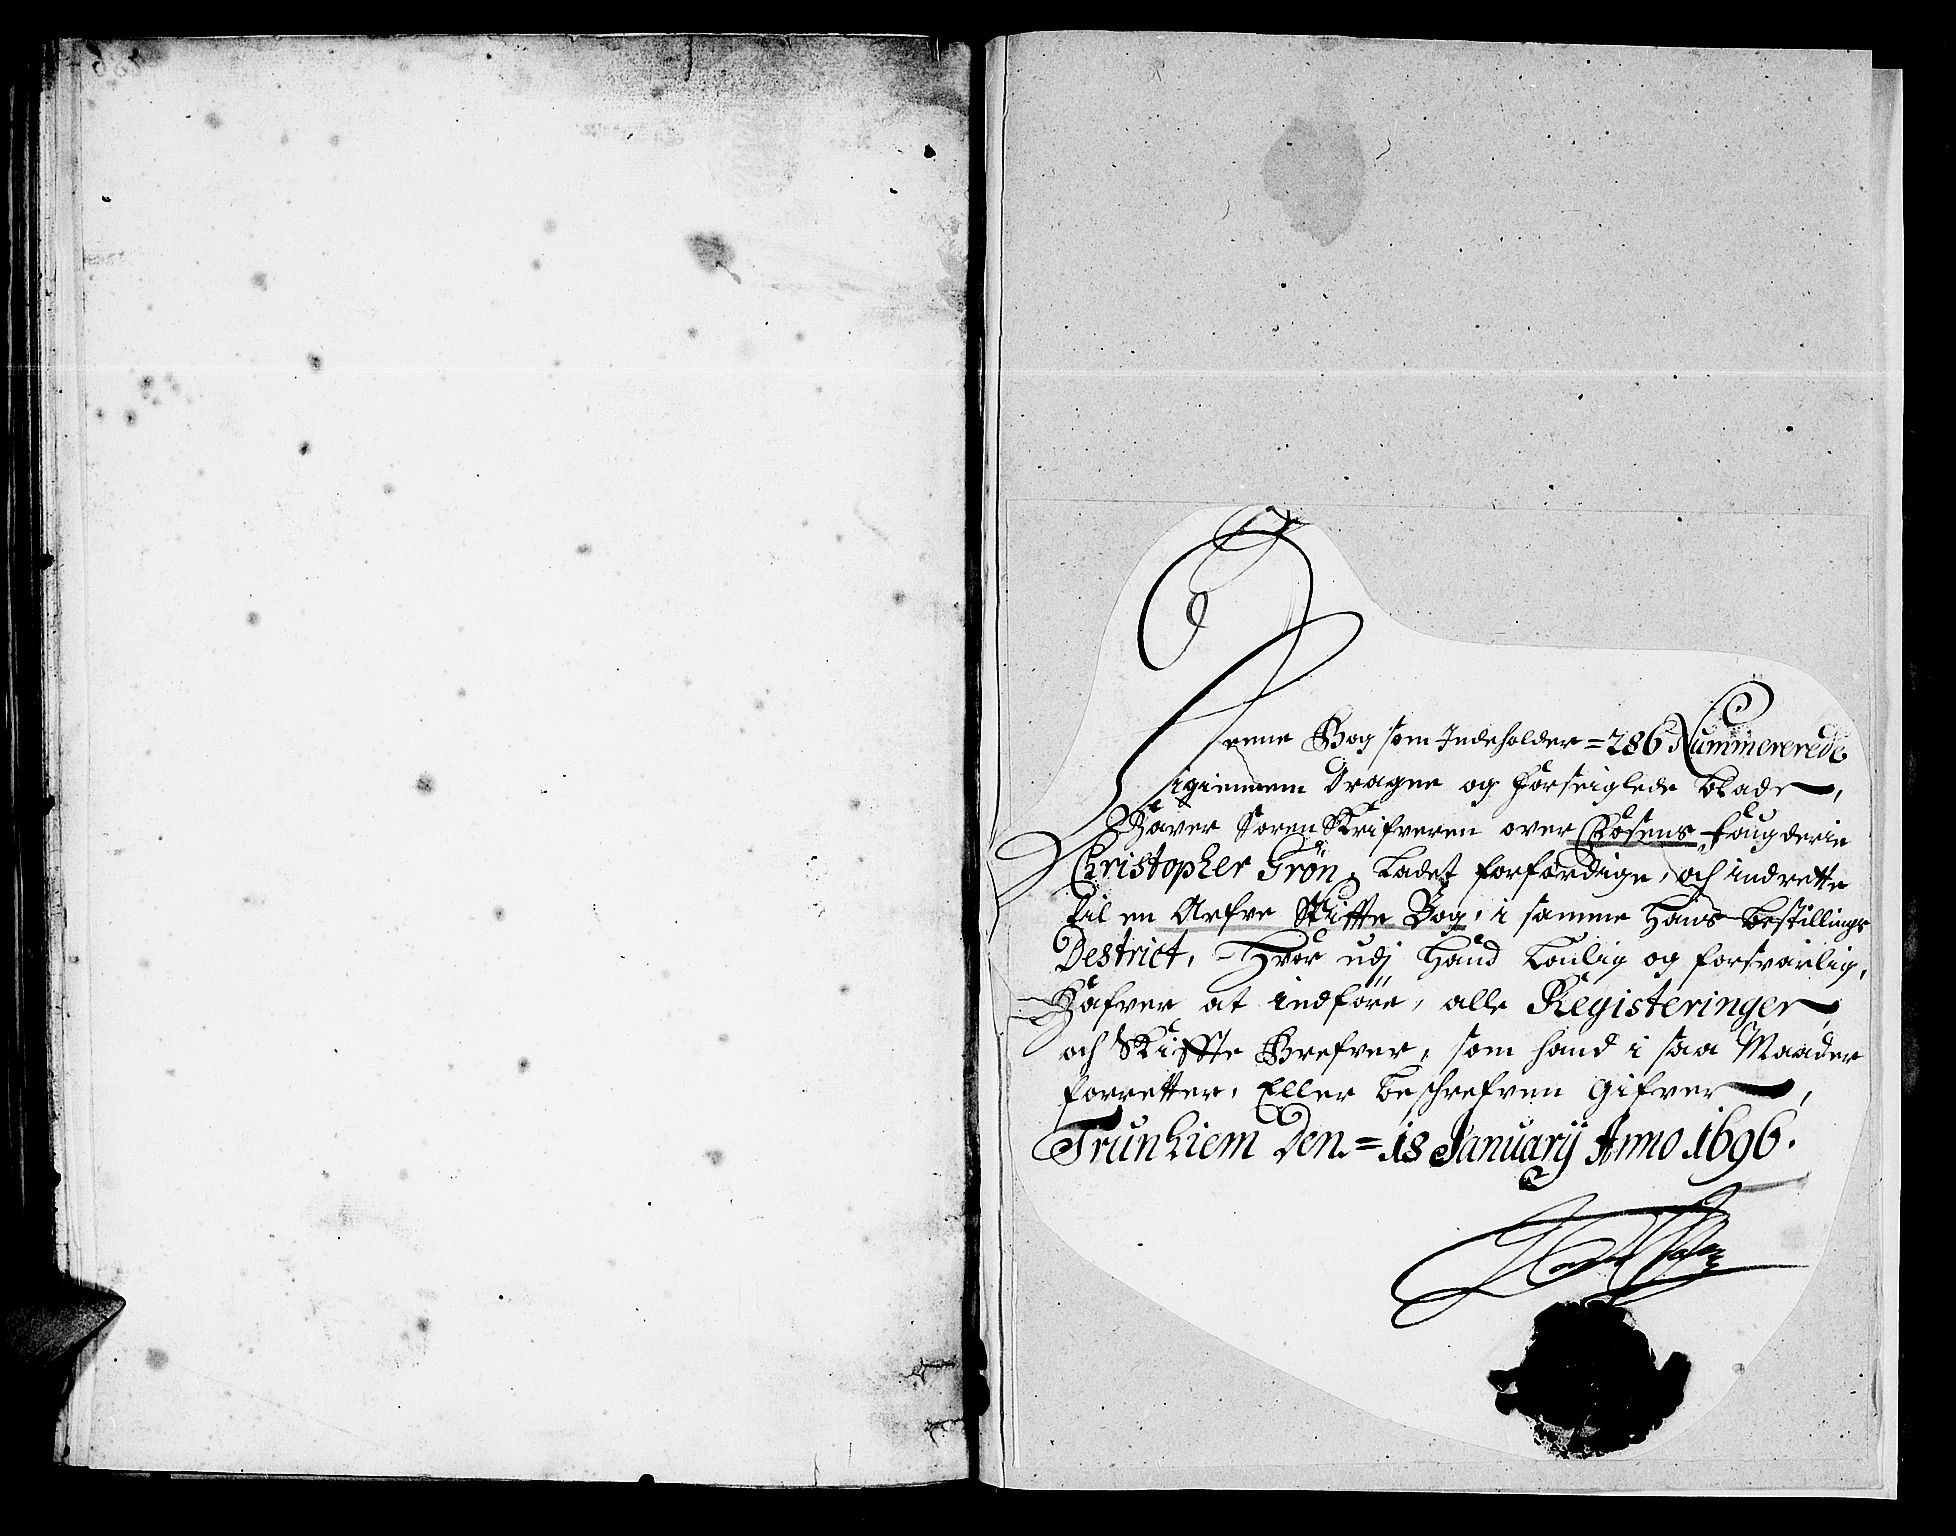 Denne Bog som Indeholder = 286 Nummererede
igiennem Dragne og forseiglede blade,
Haver SorenSkrifveren over Fosens fougderie
Christopher Grön, Ladet forfærdige, och indrette
til en Arfve Skiffte Bog, i samme Hans bestillings
Destrict, Hvor udj Hand Loulig og forsvarlig,
Hafver at indföre, alle Registeringer
och Skiffte Brefver, som hand i saa Maader
forretter, Eller beschrefven Gifver,
Trunhiem Den = 18 Januarij Anno 1696.